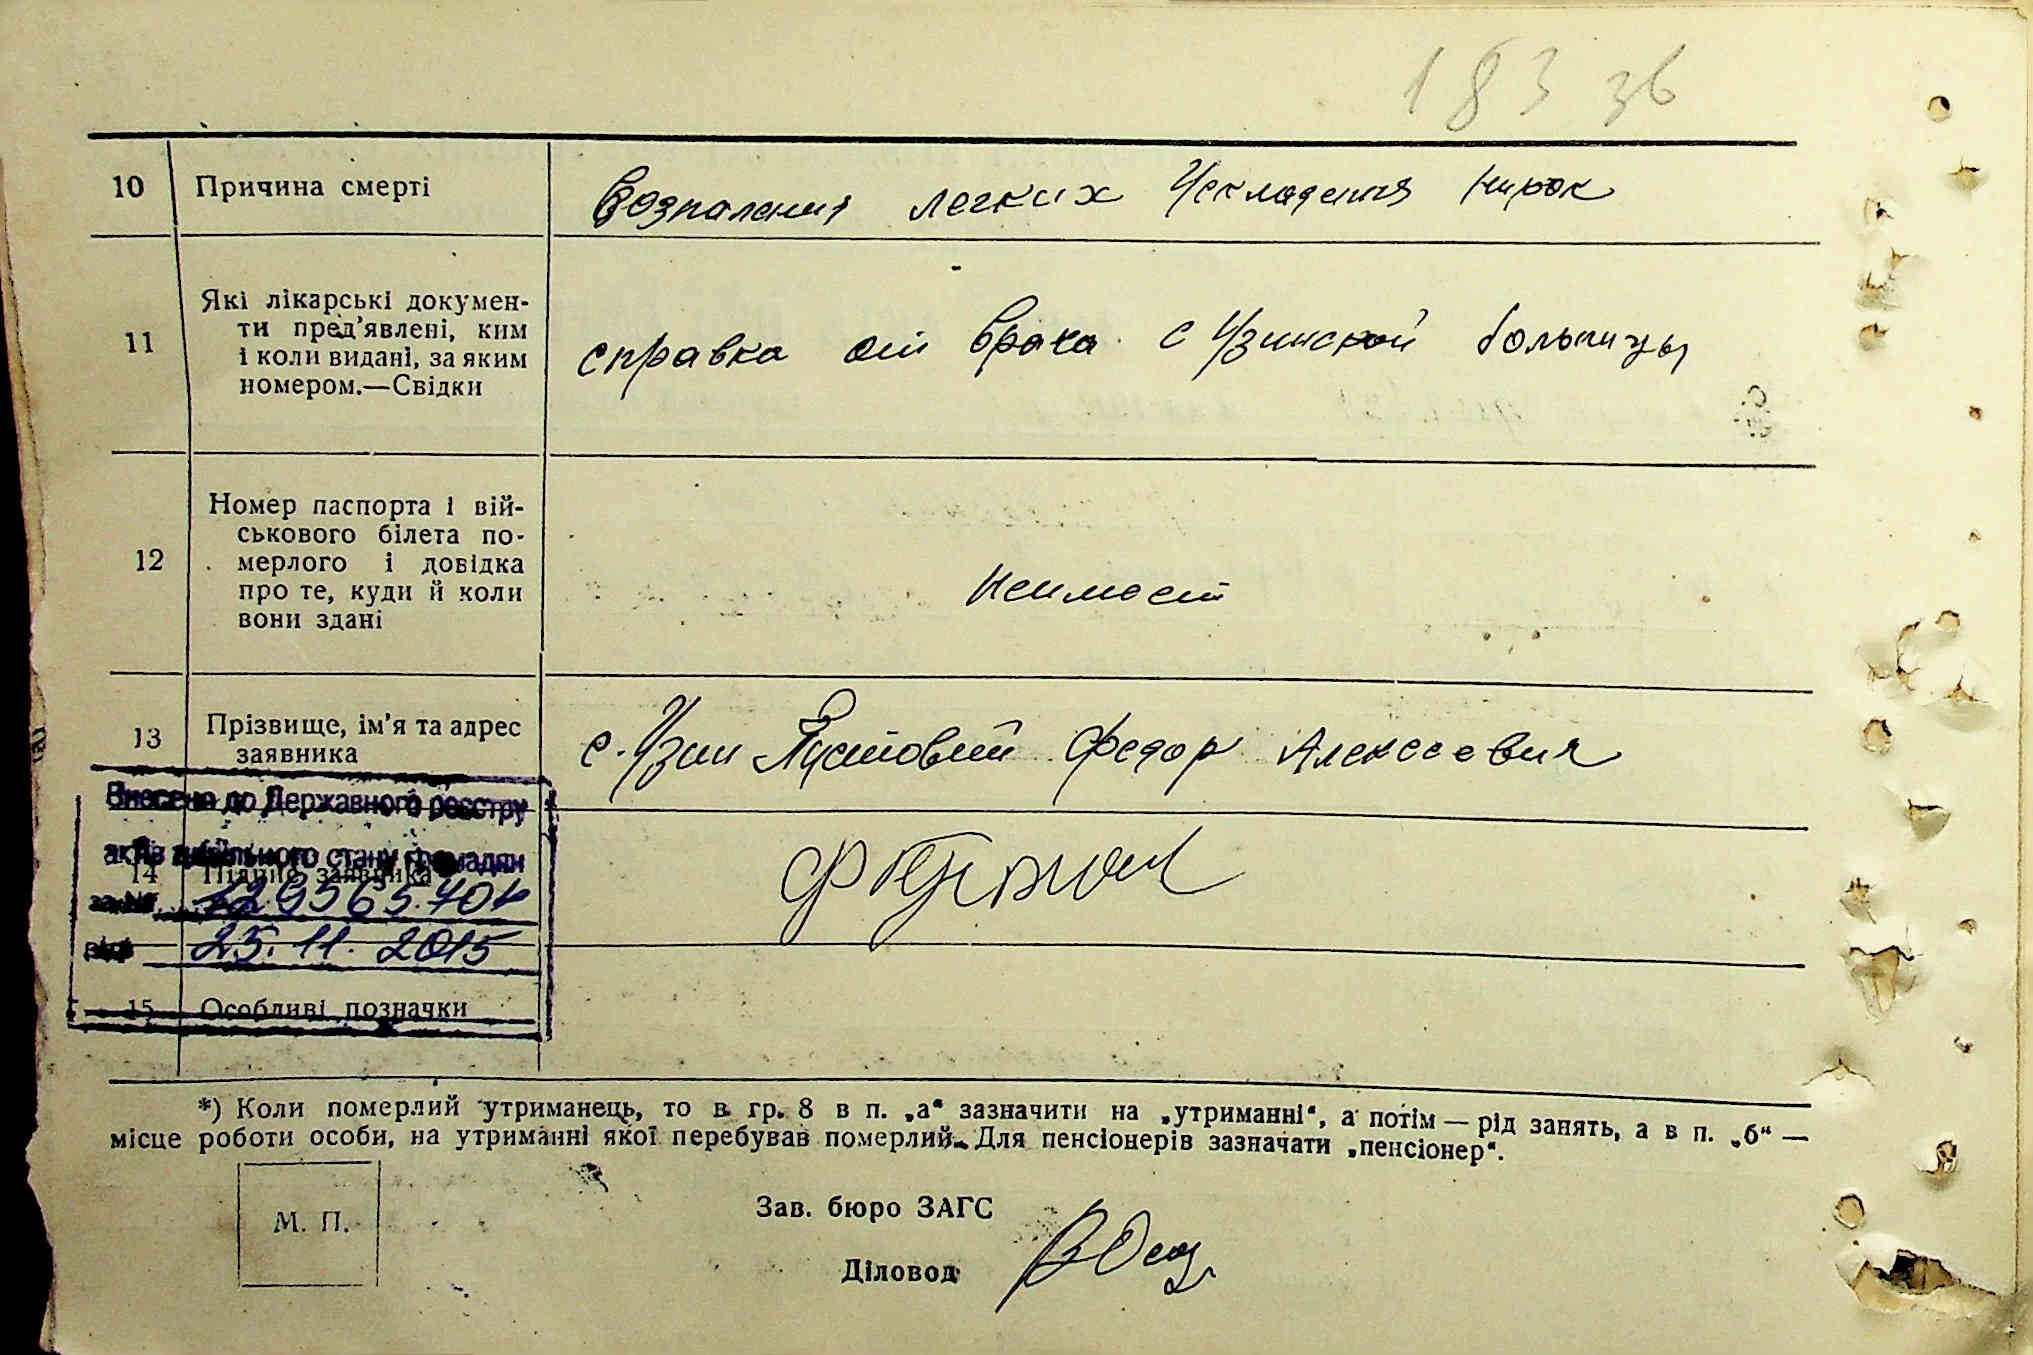 183 зв
10 Причина смерті Возпаления легких Ускладения нирок
11 Які лікарські докумен-
ти пред'явлені, ким
і коли видані, за яким
номером.—Свідки
справка от врача с Узинской больницы
12 Номер паспорта і вій-
ськового білета по-
мерлого і довідка
про те, куди й коли
вони здані
Неимеет
13 Прізвище, ім'я та адрес
заявника
с. Узин Пустовит Федор Алексеевич
Внесено до Державного реєстру
актів цивільного стану громадян
14 Підпис заявника
за №
від 25.11.2015
15 Особливі позначки
*) Коли померлий утриманець, то в гр. 8 в п. „а“ зазначити на „утриманні“, а потім — рід занять, а в п. „б“ —
місце роботи особи, на утриманні якої перебував померлий. Для пенсіонерів зазначати „пенсіонер“.
М. П.
Зав. бюро ЗАГС
Діловод